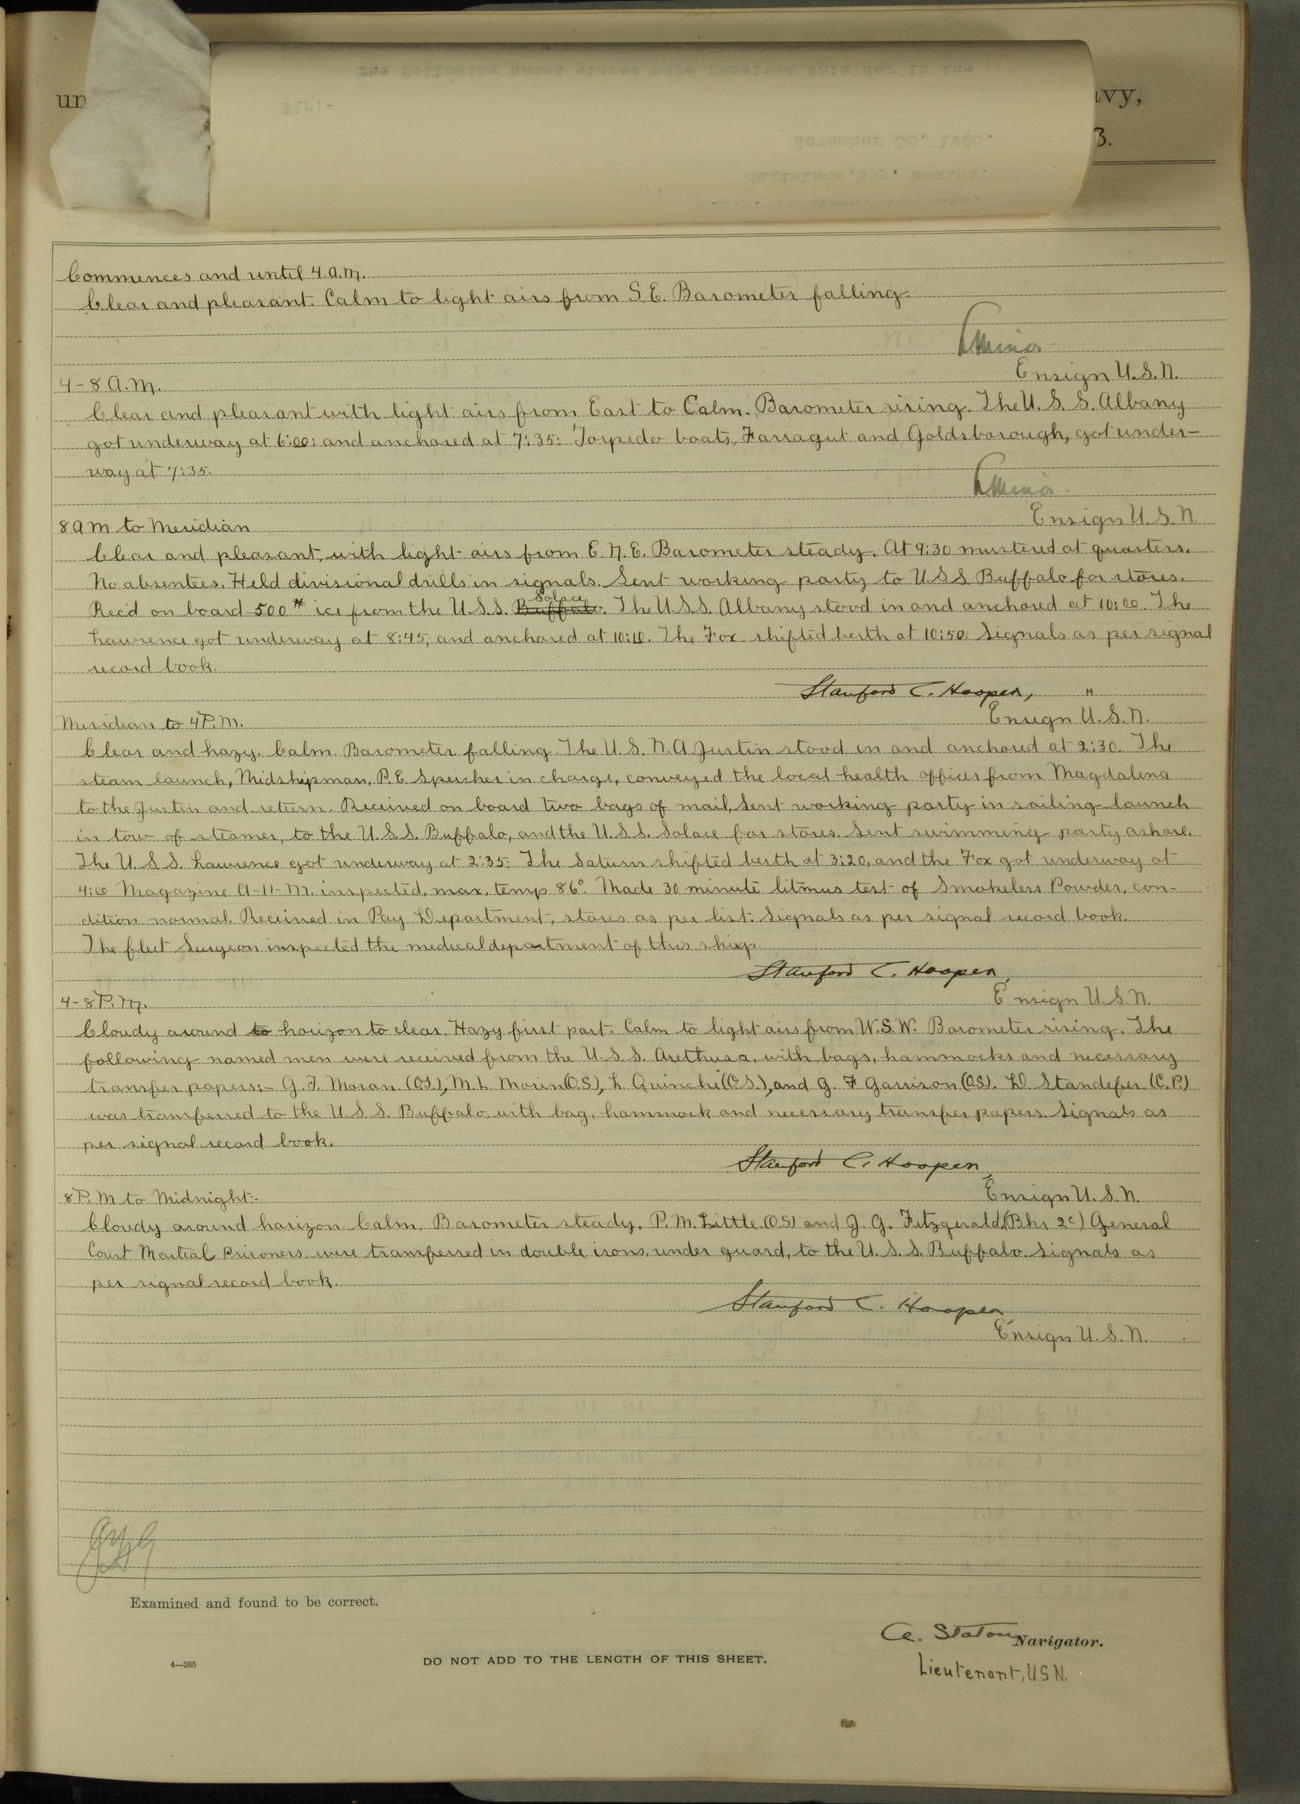 un
avy,
3.
Commences and until 4 a.m.
Clear and pleasant. Calm to light airs from S.E. Barometer falling.
Ensign U.S.N.
4-8 A.M.
Clear and pleasant with light airs from East to Calm. Barometer rising. The U.S.S. Albany
got underway at 6:00: and anchored at 7:35: Torpedo boats, Farragut and Goldsborough, got under-
way at 7:35.
Ensign U.S.N.
8 a m to Meridian
Clear and pleasant, with light airs from E.N.E. Barometer steady. At 9:30 mustered at quarters.
No absentees. Held divisional drills in signals. Sent working party to U.S.S. Buffalo for stores.
Solace
Rec'd on board 500# ice from the U.S.S. Buffalo. The U.S.S. Albany stood in and anchored at 10:00. The
Lawrence got underway at 8:45, and anchored at 10:10. The Fox shifted berth at 10:50. Signals as per signal
record book.
Stanford C. Hooper,
Ensign U.S.N.
Meridian to 4 P.M.
Clear and hazy. Calm. Barometer falling. The U.S.N.A Justin stood in and anchored at 2:30. The
steam launch, Midshipman, P.E. Speicher in charge, conveyed the local health officer from Magdalena
to the Justin and return. Received on board two bags of mail, Sent working party in sailing launch
in tow of steamer, to the U.S.S. Buffalo, and the U.S.S. Solace for stores. Sent swimming party ashore.
The U.S.S. Lawrence got underway at 2:35: The Saturn shifted berth at 3:20, and the Fox got underway at
4:00 Magazine A-11-M. inspected, max, temp 86°. Made 30 minute litmus test of Smokeless Powder, con-
dition normal. Received in Pay Department, stores as per list. Signals as per signal record book.
The fleet Surgeon inspected the medical department of this ship.
Stanford C. Hooper,
Ensign U.S.N.
4-8 P.M.
Cloudy around to horizon to clear. Hazy first part. Calm to light airs from W.S.W. Barometer rising. The
following named men were received from the U.S.S. Arethusa, with bags, hammocks and necessary
transfer papers:- G.F. Moran (OS.), M.L. Morin (O.S), L. Quinchi (O.S.), and G. F Garrison (OS). D. Standefer (C.P)
was transferred to the U.S.S. Buffalo with bag, hammock and necessary transfer papers. Signals as
per signal record book.
Stanford C. Hooper,
Ensign U.S.N.
8 P.M to Midnight:-
Cloudy around horizon Calm. Barometer steady. P.M. Little (O.S) and J. G. Fitzgerald, (Bkr 2c) General
Court Martial Prisoners, were transferred in double irons, under guard, to the U.S.S. Buffalo. Signals as
per signal record book.
Stanford C. Hooper
Ensign U.S.N.
Examined and found to be correct.
A. Staton Navigator.
Lieutenant, USN.
4—265
DO NOT ADD TO THE LENGTH OF THIS SHEET.